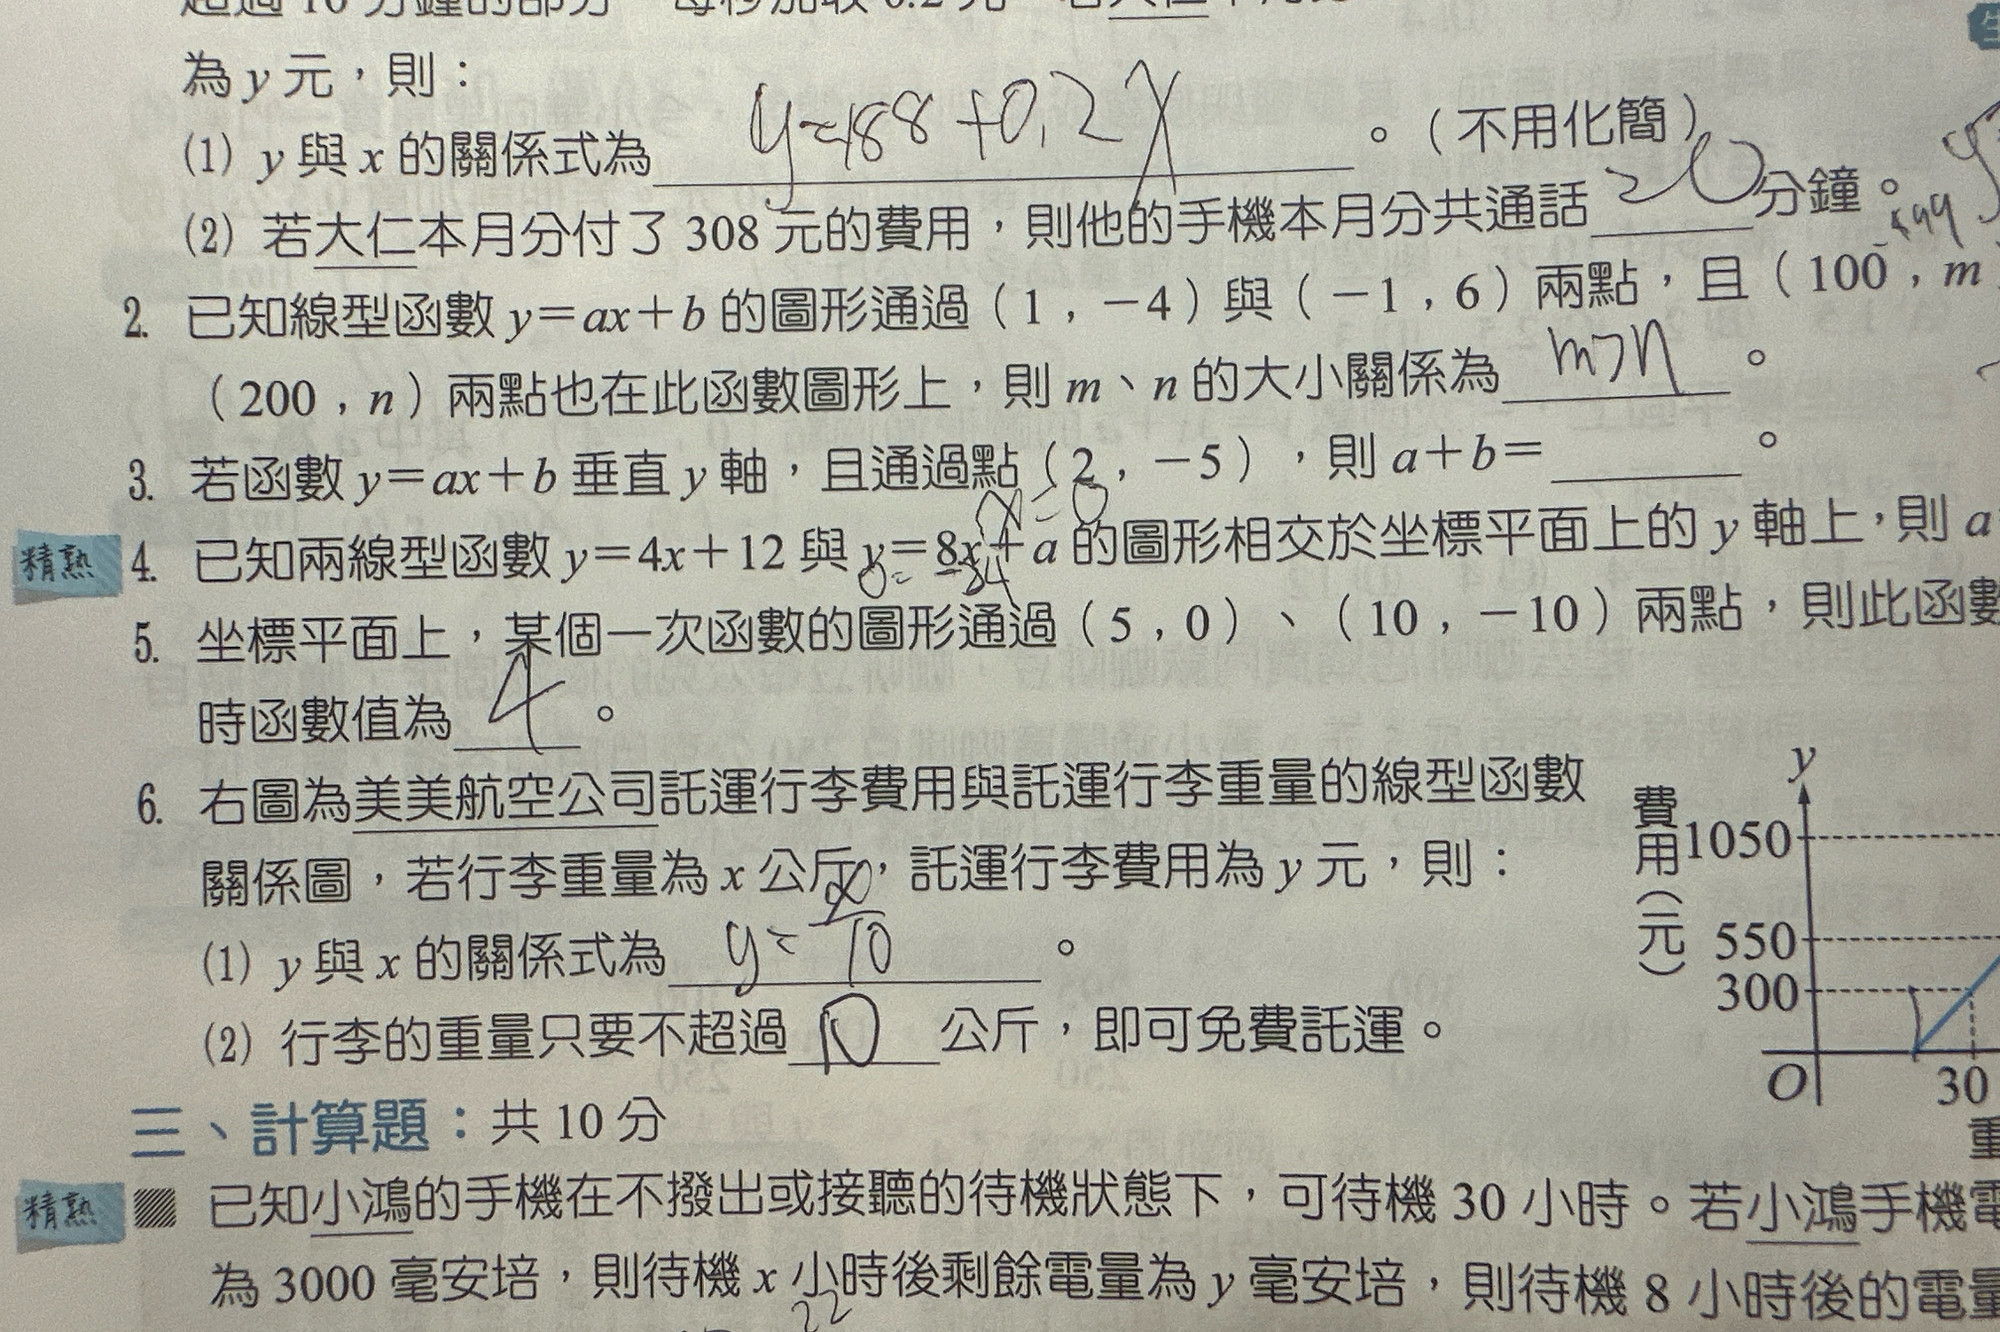 為 y 元，則：
(1) y 與 x 的關係式為 y=188+0.2x 。(不用化簡)
(2) 若大仁本月分付了 308 元的費用，則他的手機本月分共通話 20 分鐘。
2. 已知線型函數 y=ax+b 的圖形通過(1，-4)與(-1，6)兩點，且(100，m
(200，n)兩點也在此函數圖形上，則 m、n 的大小關係為 m>n 。
3. 若函數 y=ax+b 垂直 y 軸，且通過點(2，-5)，則 a+b= 。
精熟 4. 已知兩線型函數 y=4x+12 與 y=8x+a 的圖形相交於坐標平面上的 y 軸上，則 a
5. 坐標平面上，某個一次函數的圖形通過(5，0)、(10，-10)兩點，則此函數
時函數值為 4 。
6. 右圖為美美航空公司託運行李費用與託運行李重量的線型函數
關係圖，若行李重量為 x 公斤，託運行李費用為 y 元，則：
(1) y 與 x 的關係式為 。
(2) 行李的重量只要不超過 10 公斤，即可免費託運。
y
費用(元)
1050
550
300
O
30
重
三、計算題：共 10 分
精熟 已知小鴻的手機在不撥出或接聽的待機狀態下，可待機 30 小時。若小鴻手機電
為 3000 毫安培，則待機 x 小時後剩餘電量為 y 毫安培，則待機 8 小時後的電量
22